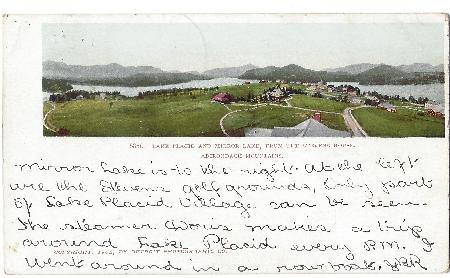 LAKE PLACID AND MIRROR LAKE, FROM THE STEVENS HOUSE,
ADIRONDACK MOUNTAINS.
Mirror Lake is to the right. At the left
are the Stevens golf grounds, Only part
of Lake Placid Village can be seen.
The steamer Doris makes a trip
around Lake Placid every P.M. I
COPYRIGHT, BY DETROIT PHOTOGRAPHIC CO.
went around in a row boat.